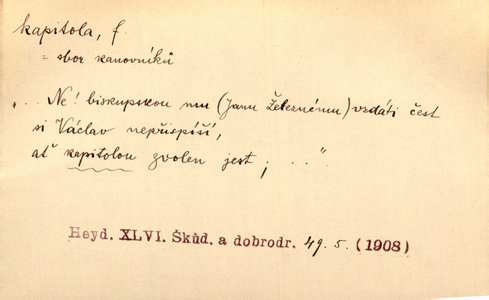 kapitola, f.
= sbor kanovníků
„ . . Ne! biskupskou mu (Janu Železnému) vzdáti čest
si Václav nepřispíší,
ať kapitolou zvolen jest ; . . “.
Heyd. XLVI. Škůd. a dobrodr. 49. 5. (1908)